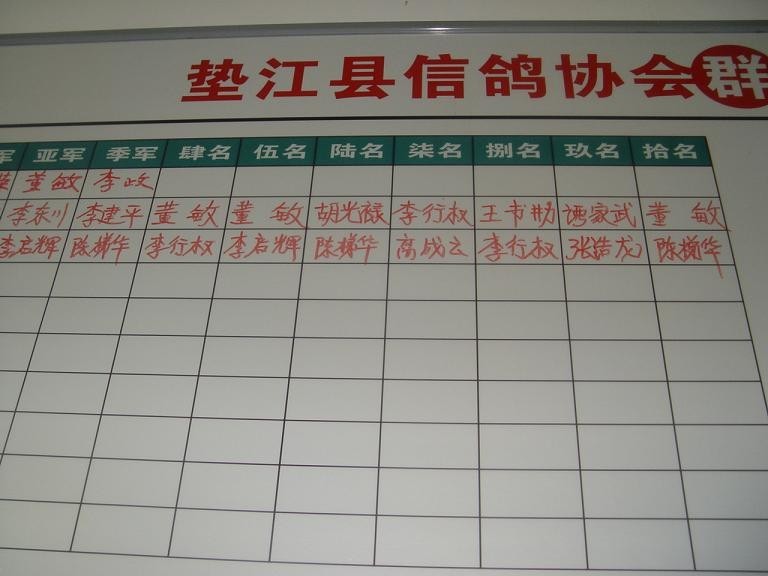 垫江县信鸽协会群
军 亚军 季军 肆名 伍名 陆名 柒名 捌名 玖名 拾名
董敏 李政
李东川 李建平 董敏 董敏 胡光禄 李行权 王书勋 谭家武 董敏
李启辉 陈梯华 李行权 李启辉 陈梯华 高成云 李行权 张浩龙 陈梯华